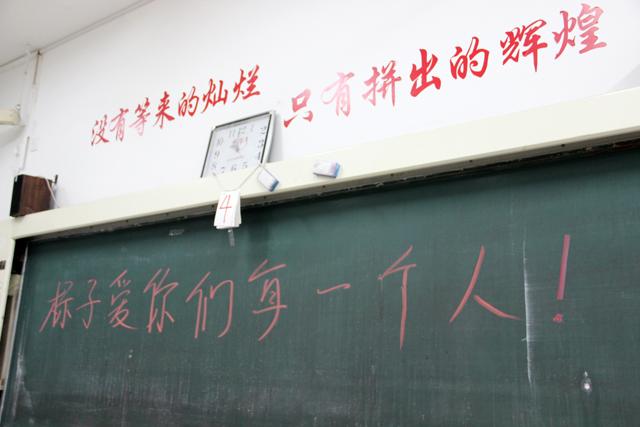 没有等来的灿烂 只有拼出的辉煌
4
棕子爱你们每一个人！